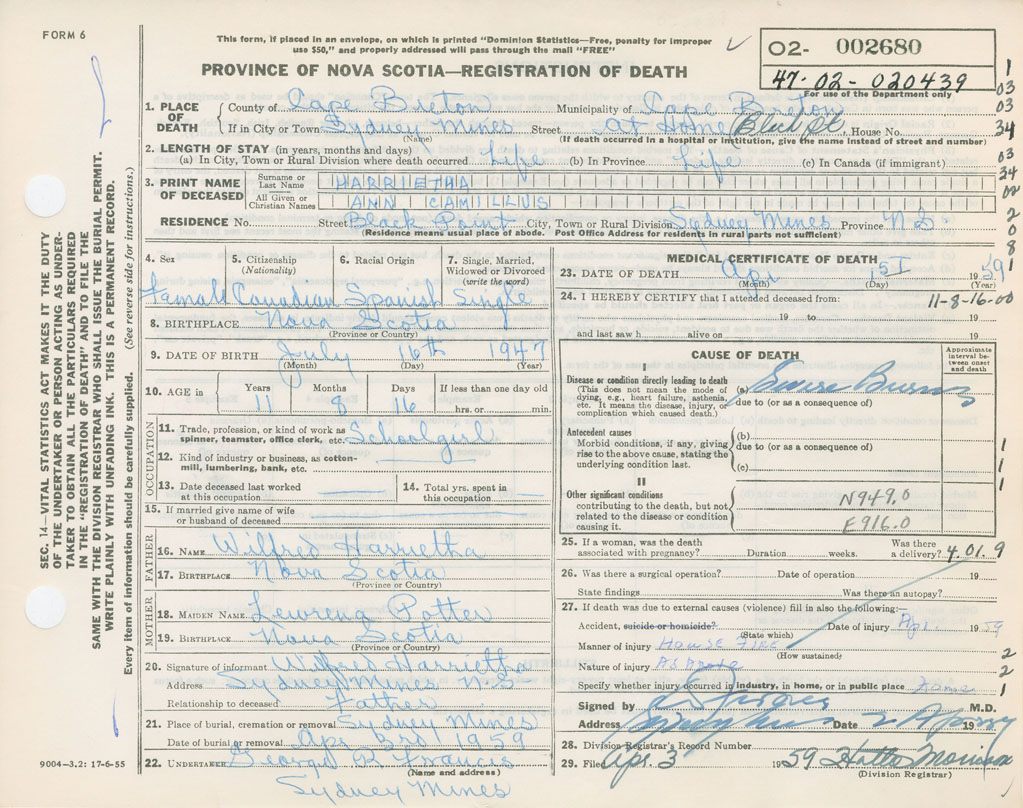 FORM 6
This form, if placed in an envelope, on which is printed "Dominion Statistics—Free, penalty for improper
use $50," and properly addressed will pass through the mail "FREE"
PROVINCE OF NOVA SCOTIA—REGISTRATION OF DEATH
02- 002680
47-02-020439
For use of the Department only
1. PLACE OF DEATH County of Cape Breton Municipality of Cape Breton
If in City or Town Sydney Mines Street At Home House No.
(Name) (If death occurred in a hospital or institution, give the name instead of street and number)
2. LENGTH OF STAY (in years, months and days)
(a) In City, Town or Rural Division where death occurred Life (b) In Province Life (c) In Canada (if immigrant)
3. PRINT NAME OF DECEASED
Surname or Last Name HARRIETHA
All Given or Christian Names ANN CAMILLUS
RESIDENCE No. Street Black Point City, Town or Rural Division Sydney Mines Province N S
(Residence means usual place of abode. Post Office Address for residents in rural parts not sufficient)
4. Sex 5. Citizenship (Nationality) 6. Racial Origin 7. Single, Married, Widowed or Divorced (write the word)
Female Canadian Spanish Single
8. BIRTHPLACE Nova Scotia
(Province or Country)
9. DATE OF BIRTH July 16th 1947
(Month) (Day) (Year)
10. AGE in Years Months Days If less than one day old
11 8 16 hrs. or min.
OCCUPATION
11. Trade, profession, or kind of work as
spinner, teamster, office clerk, etc. Schoolgirl
12. Kind of industry or business, as cotton-
mill, lumbering, bank, etc.
13. Date deceased last worked at this occupation 14. Total yrs. spent in this occupation
15. If married give name of wife
or husband of deceased
FATHER
16. NAME Wilfred Harrietha
17. BIRTHPLACE Nova Scotia
(Province or Country)
MOTHER
18. MAIDEN NAME Lewrena Potter
19. BIRTHPLACE Nova Scotia
(Province or Country)
20. Signature of informant Wilfred Harrietha
Address Sydney Mines N.S.
Relationship to deceased Father
21. Place of burial, cremation or removal Sydney Mines
Date of burial, or removal Apr 3rd 1959
22. UNDERTAKER George R Francis
(Name and address)
Sydney Mines
MEDICAL CERTIFICATE OF DEATH
23. DATE OF DEATH Apr 1st 1959
(Month) (Day) (Year)
24. I HEREBY CERTIFY that I attended deceased from: 11-8-16-00
19 to 19
and last saw h alive on 19
CAUSE OF DEATH
Approximate interval between onset and death
I
Disease or condition directly leading to death (a) Severe Burns
(This does not mean the mode of
dying, e.g., heart failure, asthenia, due to (or as a consequence of)
etc. It means the disease, injury, or
complication which caused death.)
Antecedent causes (b)
Morbid conditions, if any, giving due to (or as a consequence of)
rise to the above cause, stating the
underlying condition last. (c)
II
Other significant conditions N949.0
contributing to the death, but not
related to the disease or condition E916.0
causing it.
25. If a woman, was the death Was there
associated with pregnancy? Duration weeks. a delivery? 4.01.9
26. Was there a surgical operation? Date of operation 19
State findings Was there an autopsy?
27. If death was due to external causes (violence) fill in also the following:—
Accident, suicide or homicide? Date of injury Apr 1 1959
(State which)
Manner of injury HOUSE FIRE
(How sustained)
Nature of injury As Above
Specify whether injury occurred in industry, in home, or in public place home
Signed by M.D.
Address Sydney Mines Date 2 Apr 1959
28. Division Registrar's Record Number
29. Filed Apr. 3 1959
(Division Registrar)
1
03
03
34
03
34
02
2
0
0
8
1
1
1
1
2
2
1
SEC. 14—VITAL STATISTICS ACT MAKES IT THE DUTY
OF THE UNDERTAKER OR PERSON ACTING AS UNDER-
TAKER TO OBTAIN ALL THE PARTICULARS REQUIRED
IN THE "REGISTRATION OF DEATH" AND TO FILE THE
SAME WITH THE DIVISION REGISTRAR WHO SHALL ISSUE THE BURIAL PERMIT.
WRITE PLAINLY WITH UNFADING INK. THIS IS A PERMANENT RECORD.
Every item of information should be carefully supplied. (See reverse side for instructions.)
9004-3.2: 17-6-55